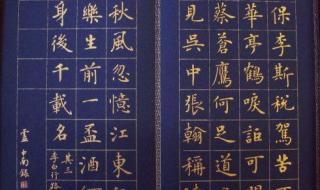 保李斯稅駕苦
華亭鶴唳詎可
蔡蒼鷹何足道
見吳中張翰稱
秋風忽憶江東
樂生前一盃酒
身後千載名
李白行路
其三